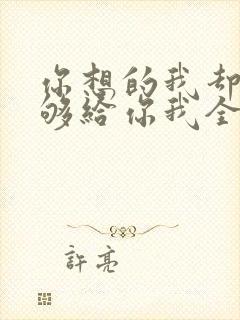 你想的我却
够给你我全
許亮